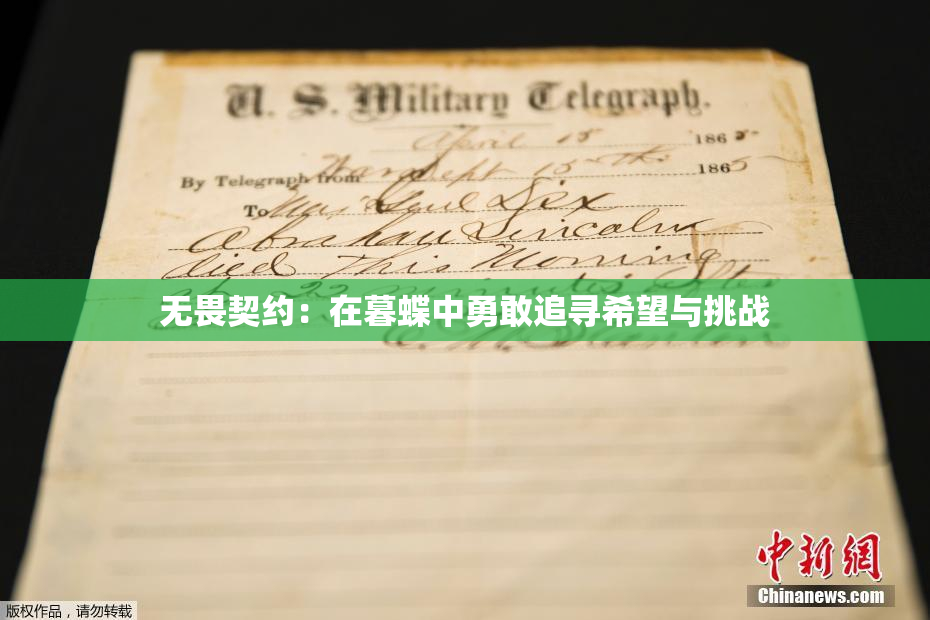 U. S. Military Telegraph.
April 15 1865
By Telegraph from War Dept 15th 1865
To Maj Genl Dix
Abraham Lincoln
died This Morning
at 22 minutes after
无畏契约：在暮蝶中勇敢追寻希望与挑战
中新网
Chinanews.com
版权作品，请勿转载